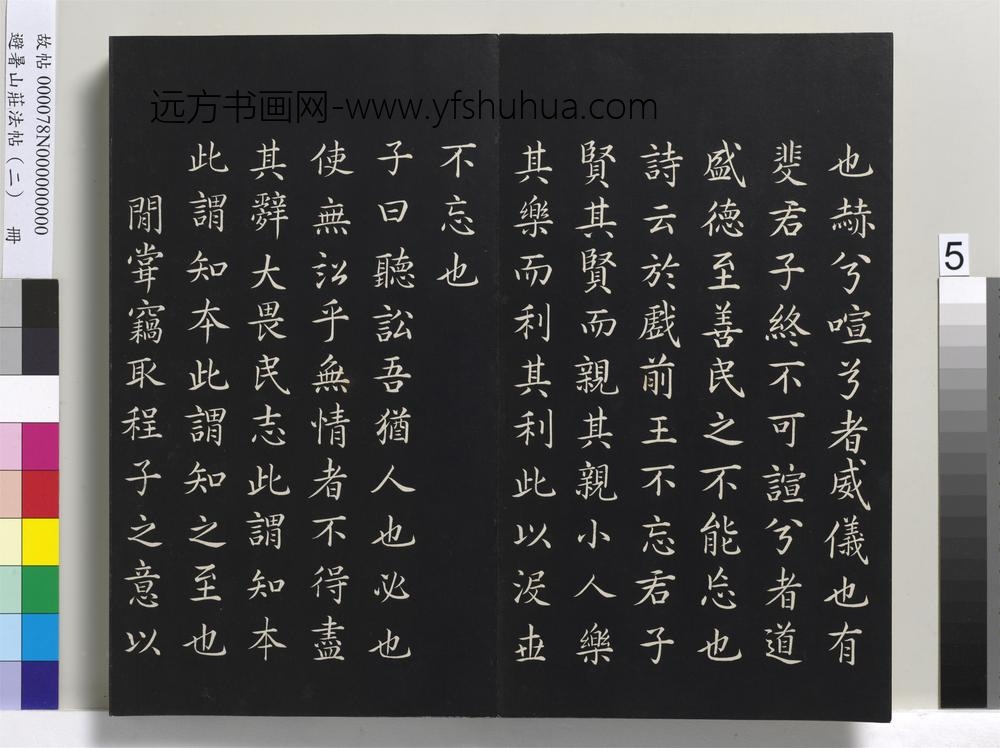 远方书画网-www.yfshuhua.com
故帖 000078N000000000
避暑山莊法帖(二) 冊
5
也赫兮喧兮者威儀也有
斐君子終不可諠兮者道
盛德至善民之不能忘也
詩云於戲前王不忘君子
賢其賢而親其親小人樂
其樂而利其利此以没世
不忘也
子曰聽訟吾猶人也必也
使無訟乎無情者不得盡
其辭大畏民志此謂知本
此謂知本此謂知之至也
間嘗竊取程子之意以